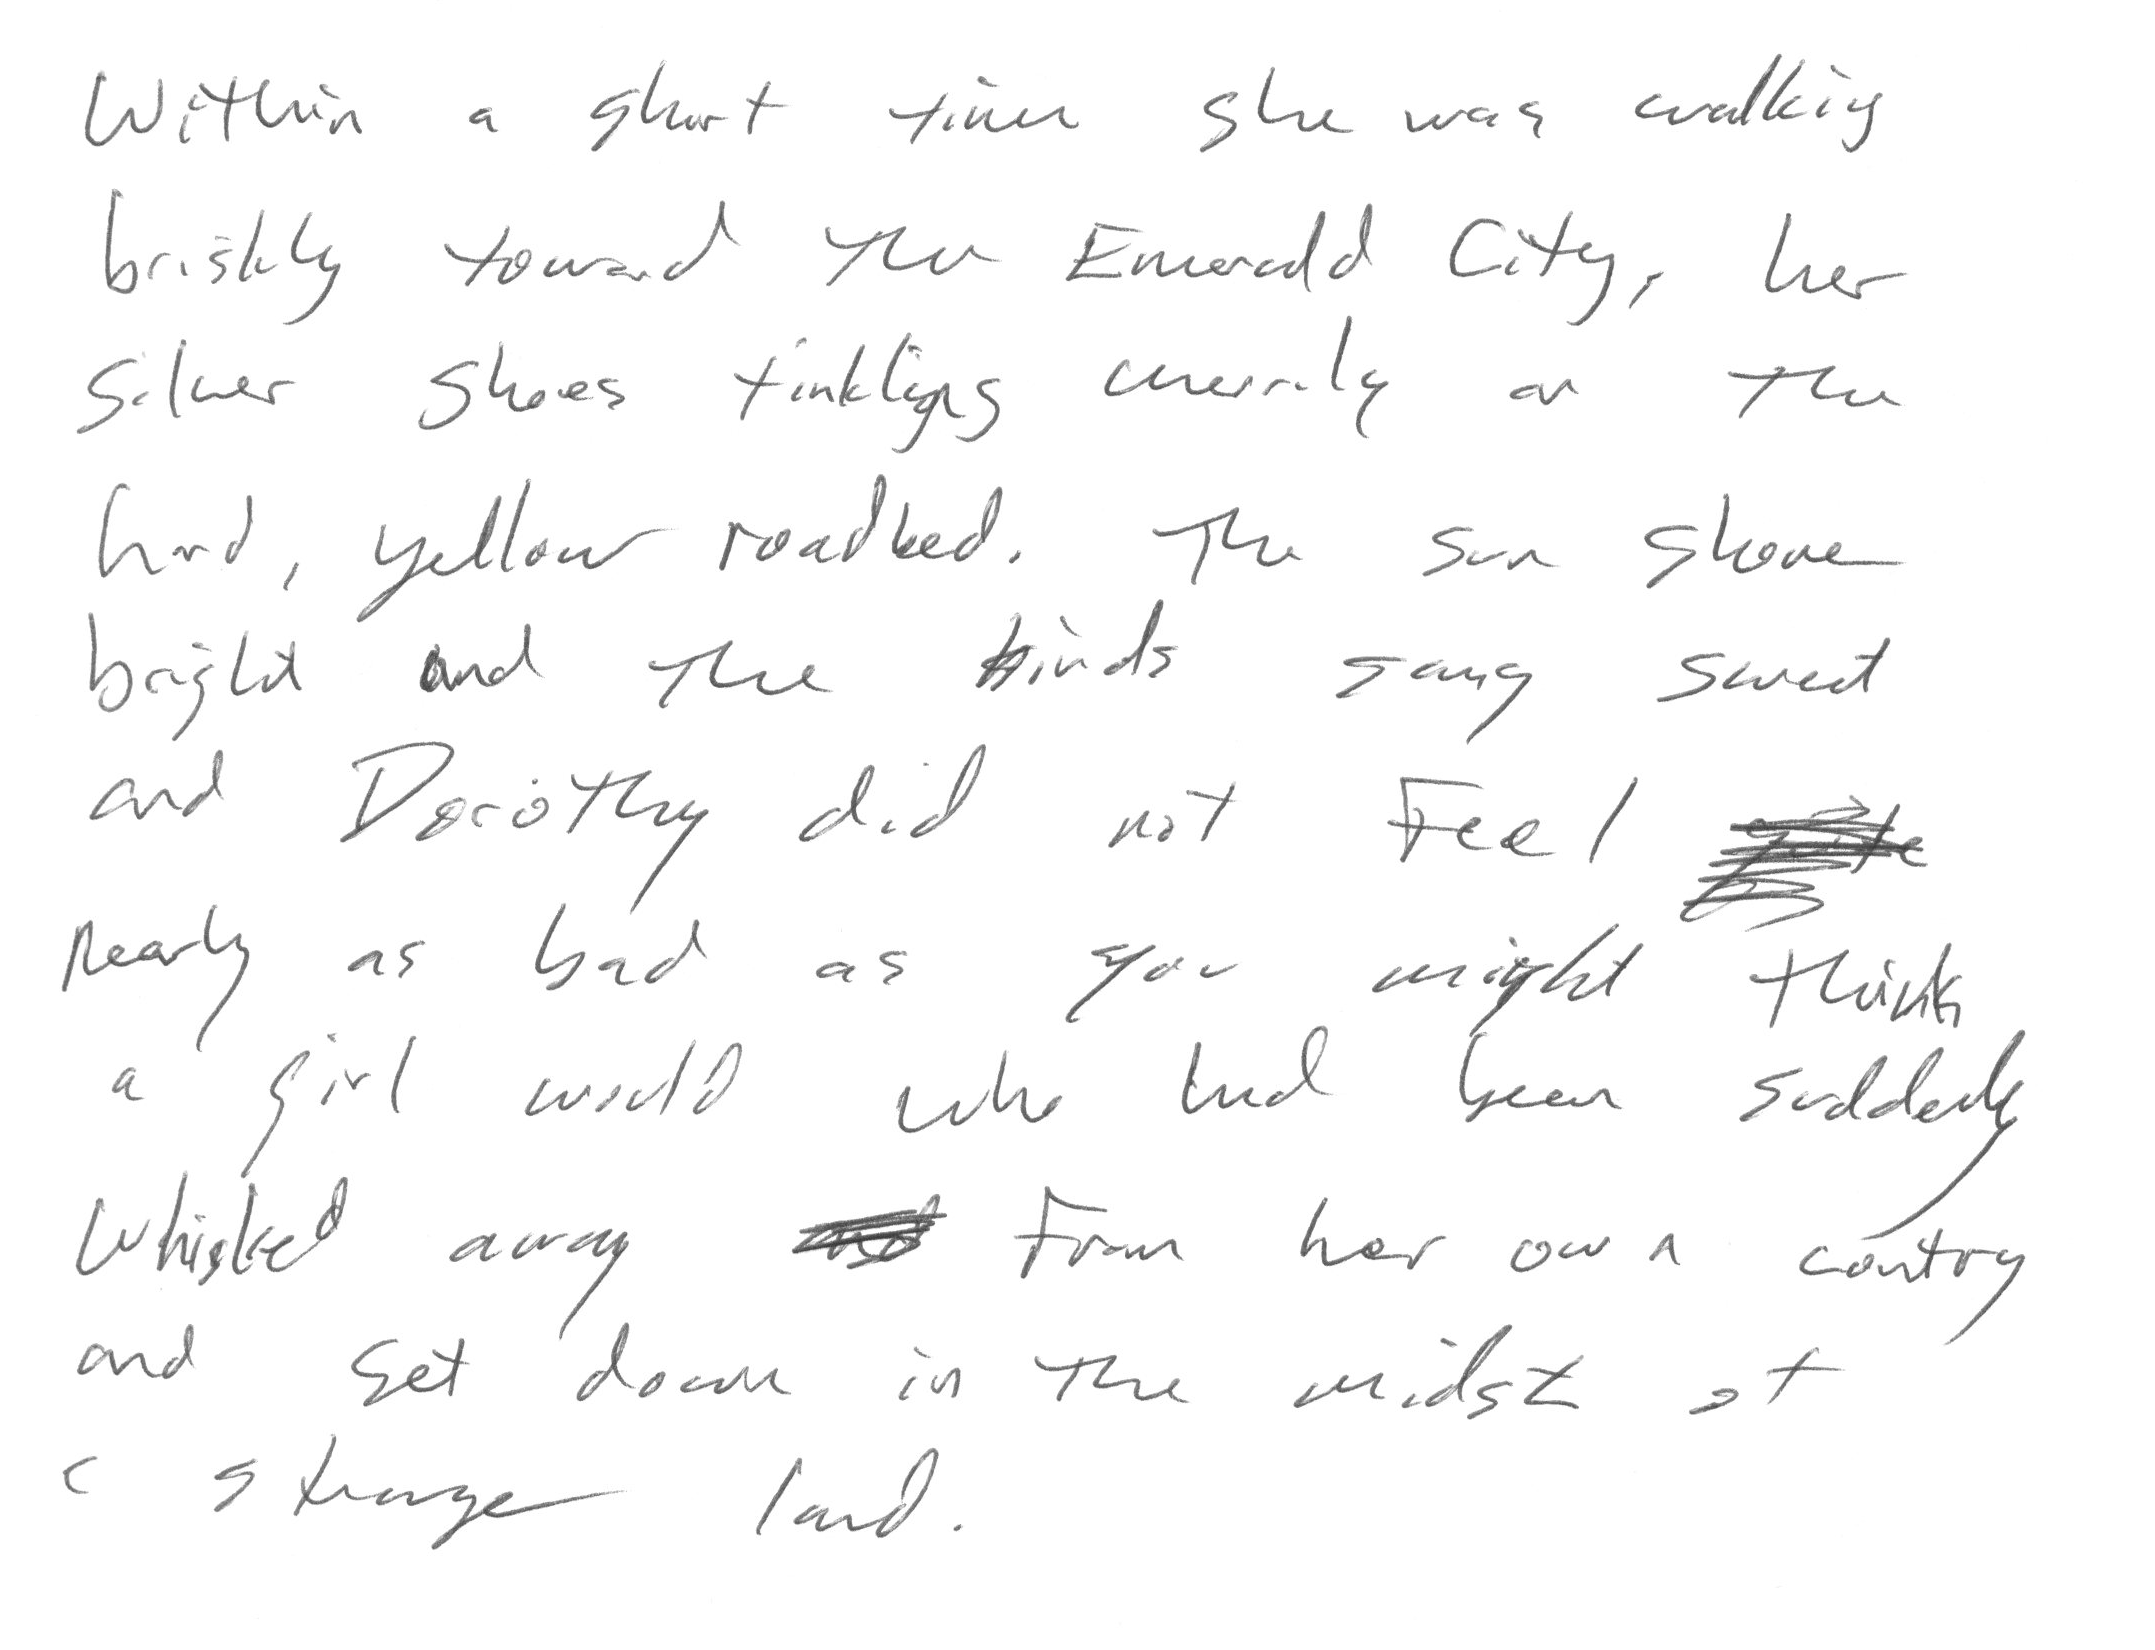 Within a short time she was walking
briskly toward the Emerald City, her
Silver Shoes tinkling merrily on the
hard, yellow roadbed. The sun shone
bright and the birds sang sweet
and Dorothy did not feel
nearly as bad as you might think
a girl would who had been suddenly
whisked away from her own country
and set down in the midst of
a strange land.